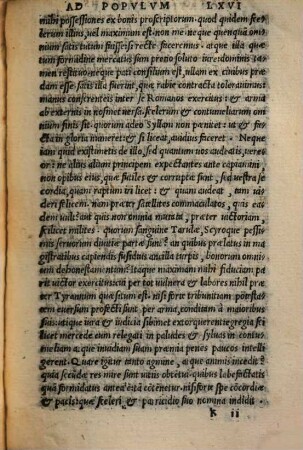 AD POPVLVM LXVI
mihi possessiones ex bonis proscriptorum. quod quidem sce-
lerum illius, vel maximum est: non me neque quenquā om-
nium satis tutum fuisse si recte faceremus. atque illa quæ
tum formidine mercatus sum precio soluto, iure dominis ta-
men restituo: neque pati consilium est, vllam ex ciuibus præ-
dam esse. satis illa fuerint, quæ rabie contracta tolerauimus:
manus conserenteis inter se Romanos exercitus: & arma
ab externis in nosmet versa. scelerum & contumeliarum om-
nium finis sit. quorum adeo Syllam non pœnitet: vt & fa-
cta in gloria numeret: & si liceat, auidius faceret. Neque
iam quid existimetis de illo, sed quantum vos audeatis, vere-
or: ne alius alium principem expectantes ante capiamini
non opibus eius, quæ futiles & corruptæ sunt, sed vestra se
cordia, quam raptum iri licet: & quam audeat, tam vi-
deri felicem. nam præter satellites commaculatos, quis ea-
dem vult? aut quis non omnia mutata, præter victoriam,
scilicet milites. quorum sanguine Tarulæ, Scyroque pessi-
mis seruorum diuitiæ partæ sunt? an quibus prælatus in ma-
gistratibus capiendis fusidius ancilla turpis, bonorum omni-
um dehonestamentum? itaque maximam mihi fiduciam pa-
rit victor exercitus: cui per tot vulnera & labores nihil præ
ter Tyrannum quæsitum est. nisi forte tribunitiam potestatē
euersum profecti sunt per arma, conditam à maioribus
suis: vtique iura & iudicia sibimet extorquerent: egregia sci
licet mercede cum relegati in paludes & syluas in contu-
meliam atque inuidiam suam præmia penes paucos intelli-
gerent. Quare igitur tanto agmine, atque animis incedit?
quia secūdæ res mire sunt vitiis obtētui: quibus labefactatis
quā formidatus antea est, tā cōtēnetur. nisi forte spē cōcordiæ
& pacis: quæ sceleri & parricidio suo nomina indidit.
K ii